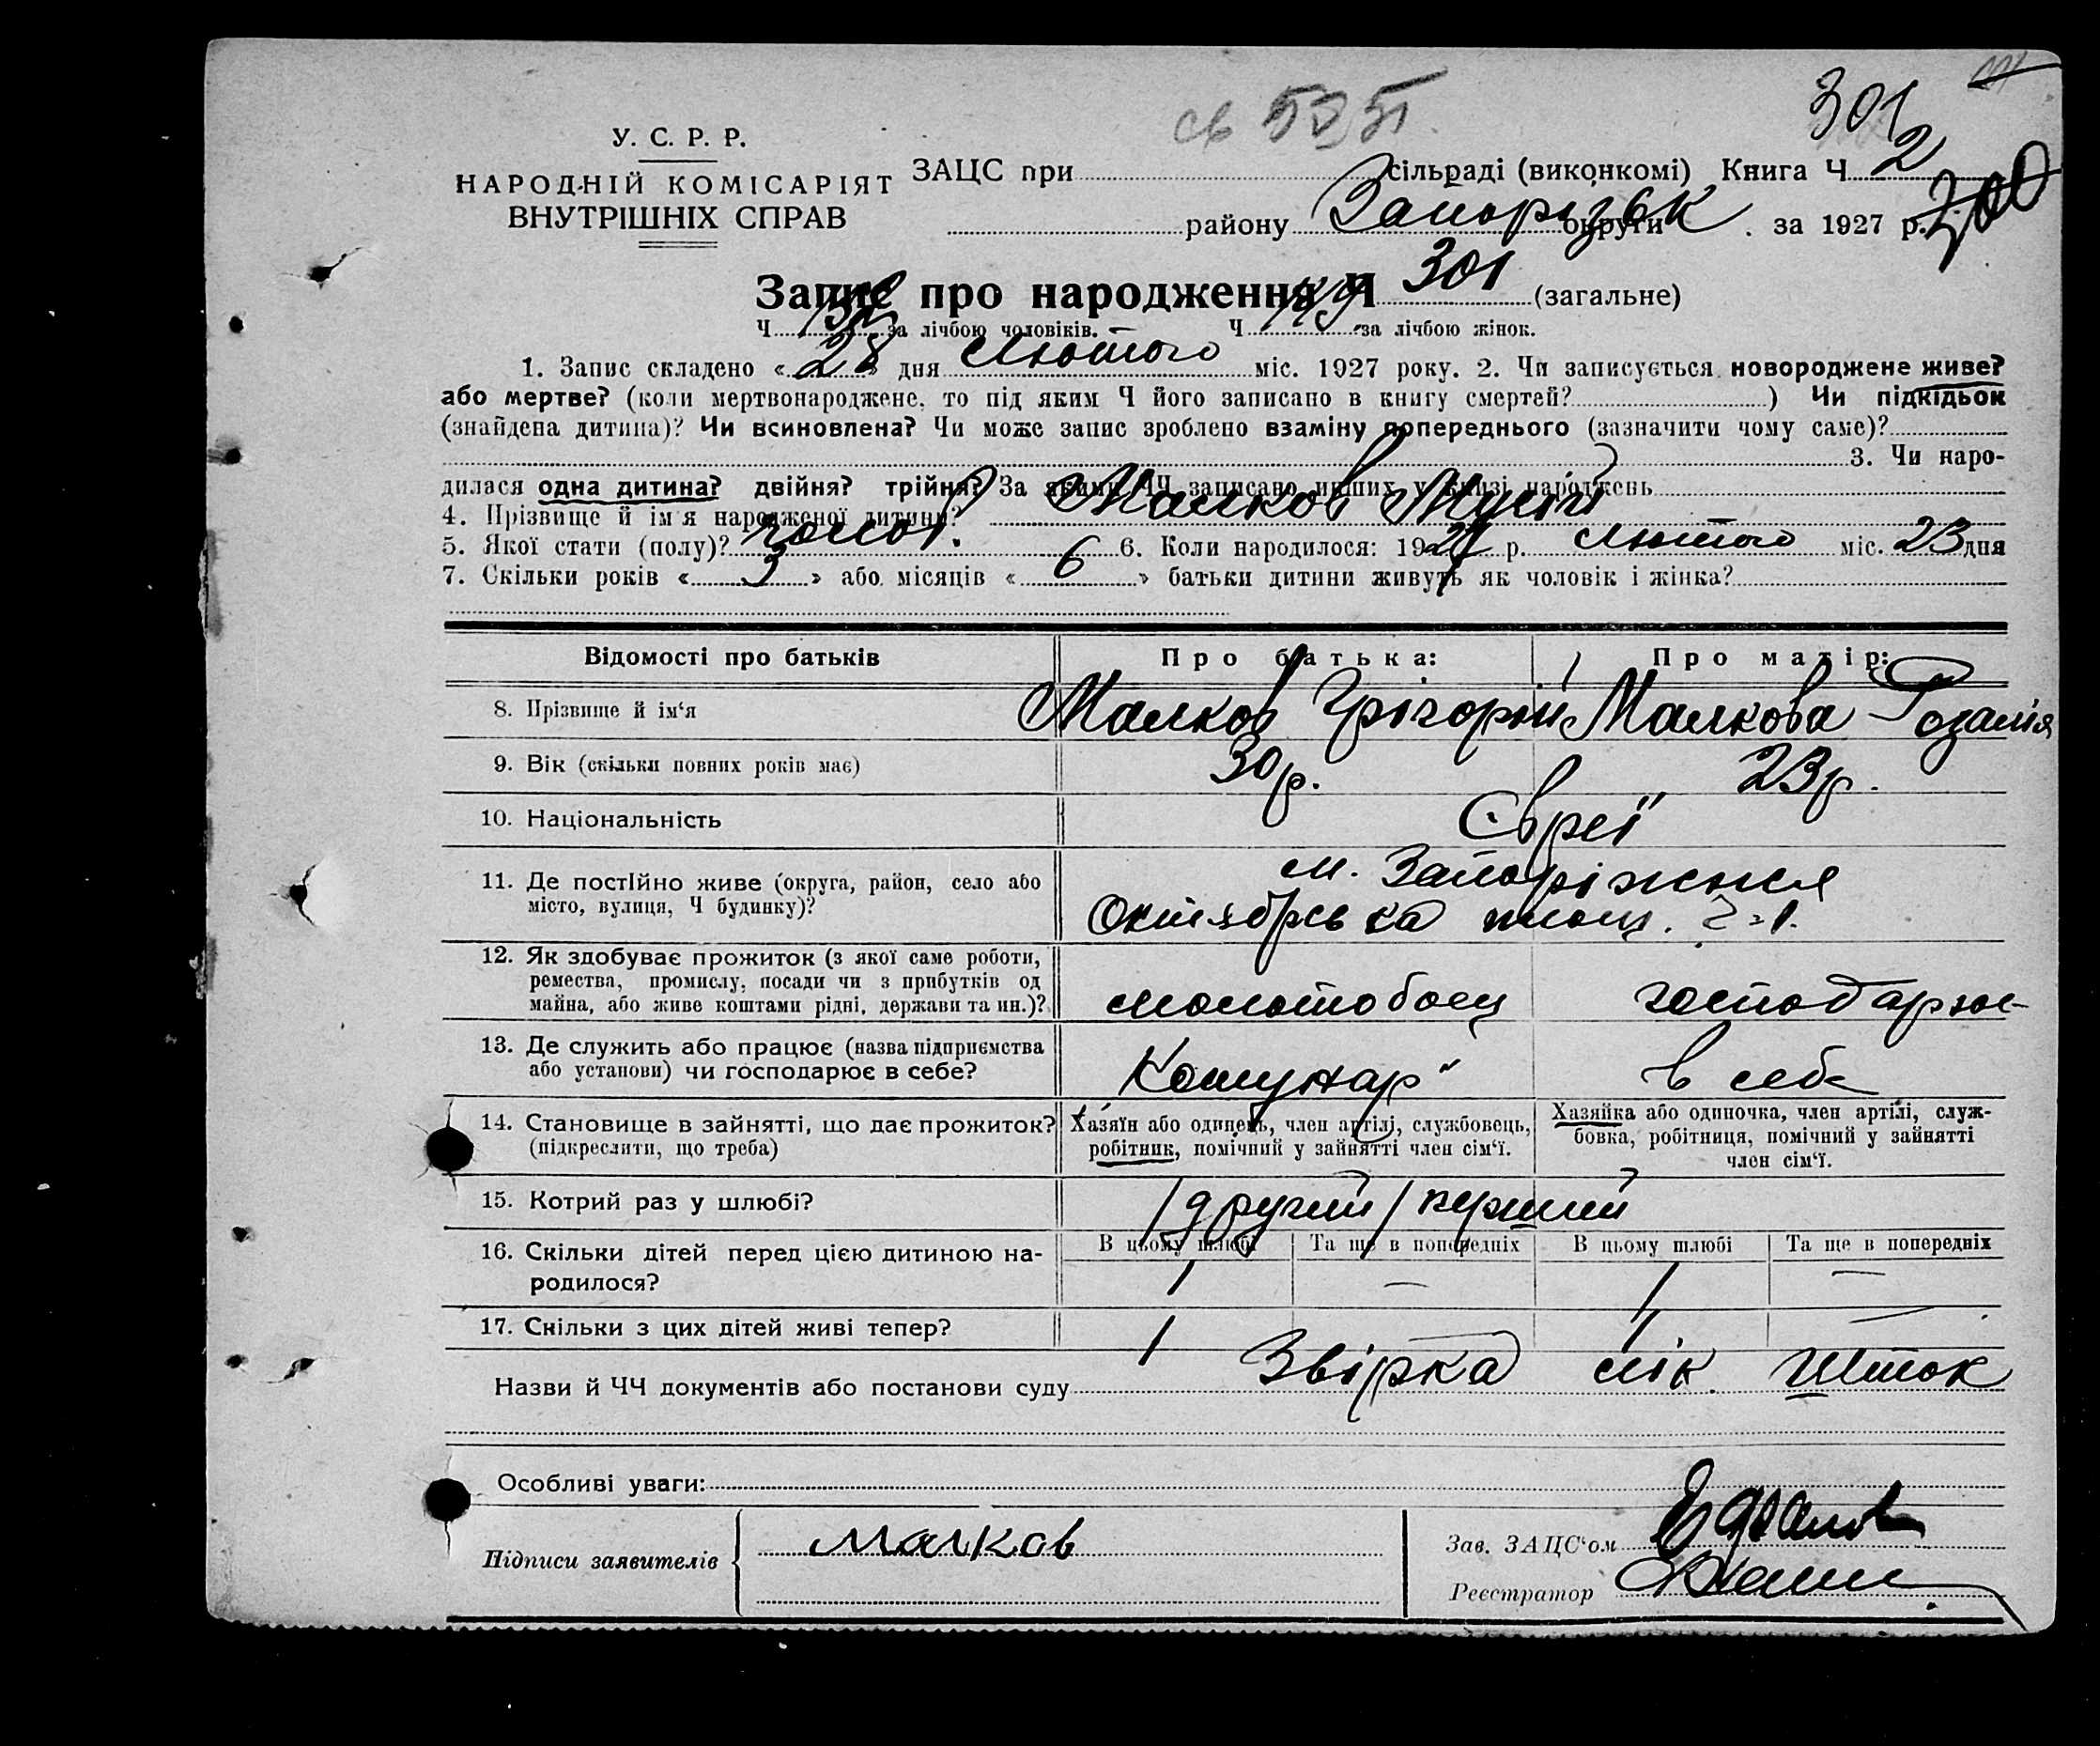 св 5351
301
У. С. Р. Р.
НАРОДНІЙ КОМІСАРІЯТ
ВНУТРІШНІХ СПРАВ
ЗАЦС при сільраді (виконкомі) Книга Ч 2
району Запорізьк округи . за 1927 р. 300
Запис про народження Ч 301 (загальне)
Ч за лічбою чоловіків. Ч за лічбою жінок.
1. Запис складено « 28 » дня Лютого міс. 1927 року. 2. Чи записується новороджене живе?
або мертве? (коли мертвонароджене, то під яким Ч його записано в книгу смертей? ) Чи підкідьок
(знайдена дитина)? Чи всиновлена? Чи може запис зроблено взаміну попереднього (зазначити чому саме)?
3. Чи наро-
дилася одна дитина? двійня? трійня? За якими ЧЧ записано инших у книзі народжень
4. Прізвище й ім'я народженої дитини? Малков
5. Якої стати (полу)? чолов. 6. Коли народилося: 1927 р. Лютого міс. 23 дня
7. Скільки років « 3 » або місяців « 6 » батьки дитини живуть як чоловік і жінка?
Відомості про батьків Про батька: Про матір:
8. Прізвище й ім'я Малков Грігорій Малкова Розалія
9. Вік (скільки повних років має) 30 р. 23 р.
10. Національність Євреї
11. Де постійно живе (округа, район, село або місто, вулиця, Ч будинку)? м. Запоріжжя
Октябрська площ. 2=1.
12. Як здобуває прожиток (з якої саме роботи,
ремества, промислу, посади чи з прибутків од
майна, або живе коштами рідні, держави та ин.)? молотобоец господарює
13. Де служить або працює (назва підприємства
або установи) чи господарює в себе? Комунар" в себе
14. Становище в зайнятті, що дає прожиток?
(підкреслити, що треба)
Хазяїн або одинець, член артілі, службовець,
робітник, помічний у зайнятті член сім'ї.
Хазяйка або одиночка, член артілі, служ-
бовка, робітниця, помічний у зайнятті
член сім'ї.
15. Котрий раз у шлюбі? / другий / перший
16. Скільки дітей перед цією дитиною на-
родилося?
В цьому шлюбі Та ще в попередніх В цьому шлюбі Та ще в попередніх
1 — 1 —
17. Скільки з цих дітей живі тепер? 1 — 1 —
Назви й ЧЧ документів або постанови суду Звірка лік. Шток
Особливі уваги:
Підписи заявителів Малков
Зав. ЗАЦС'ом
Реєстратор